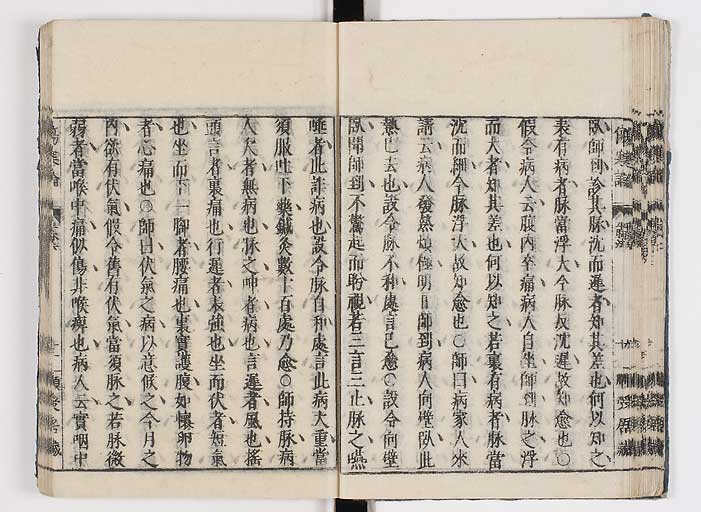 傷寒論
臥師到診其脉沈而遲者知其差也何以知之
表有病者脉當浮大今脉反沈遲故知愈也○
假令病人云腹内卒痛病人自坐師到脉之浮
而大者知其差也何以知之若裏有病者脉當
沈而細今脉浮大故知愈也○師曰病家人來
請云病人發熱煩極明日師到病人向壁臥此
熱已去也設令脉不和處言已愈○設令向壁
臥聞師到不驚起而盻視若三言三止脉之嚥
唾者此詐病也設令脉自和處言此病大重當
須服吐下藥鍼灸數十百處乃愈○師持脉病
人欠者無病也脉之呻者病也言遲者風也搖
頭言者裏痛也行遲者表強也坐而伏者短氣
也坐而下一脚者腰痛也裏實護腹如懷卵物
者心痛也○師曰伏氣之病以意候之今月之
内欲有伏氣假令舊有伏氣當須脉之若脉微
弱者當喉中痛似傷非喉痺也病人云實咽中